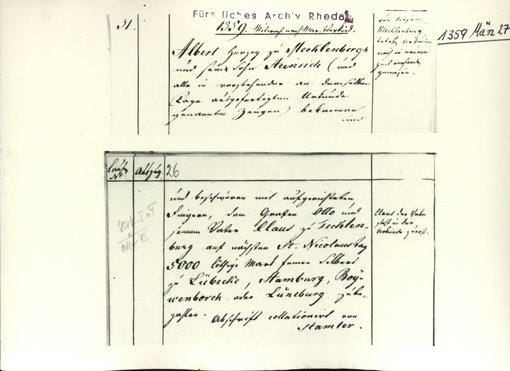 Fürstliches Archiv Rheda
1359 März 27
31.
1359. Mittwoch nach
Albert Herzog zu Mecklenburg
und sein Sohn Heinrich (und
alle in vorstehender an demselben
Tage ausgefertigten Urkunde
genannte Zeugen) bekennen
und
Mecklenburg
noch in
gewesen.
Laufd No
Auszug
26
und beschwören mit aufgerichteten
Fingern, dem Grafen Otto und
seinem Vater Claus zu Tecklen-
burg auf nächsten St. Nicolaustag
5000 löthige Mark feinen Silbers
zu Lübecke, Hamburg, Boy-
wenborch oder Lüneburg zu be-
zahlen.
Abschrift collationirt von
Stamler.
Claus der Vater
Urkunde zuerst.